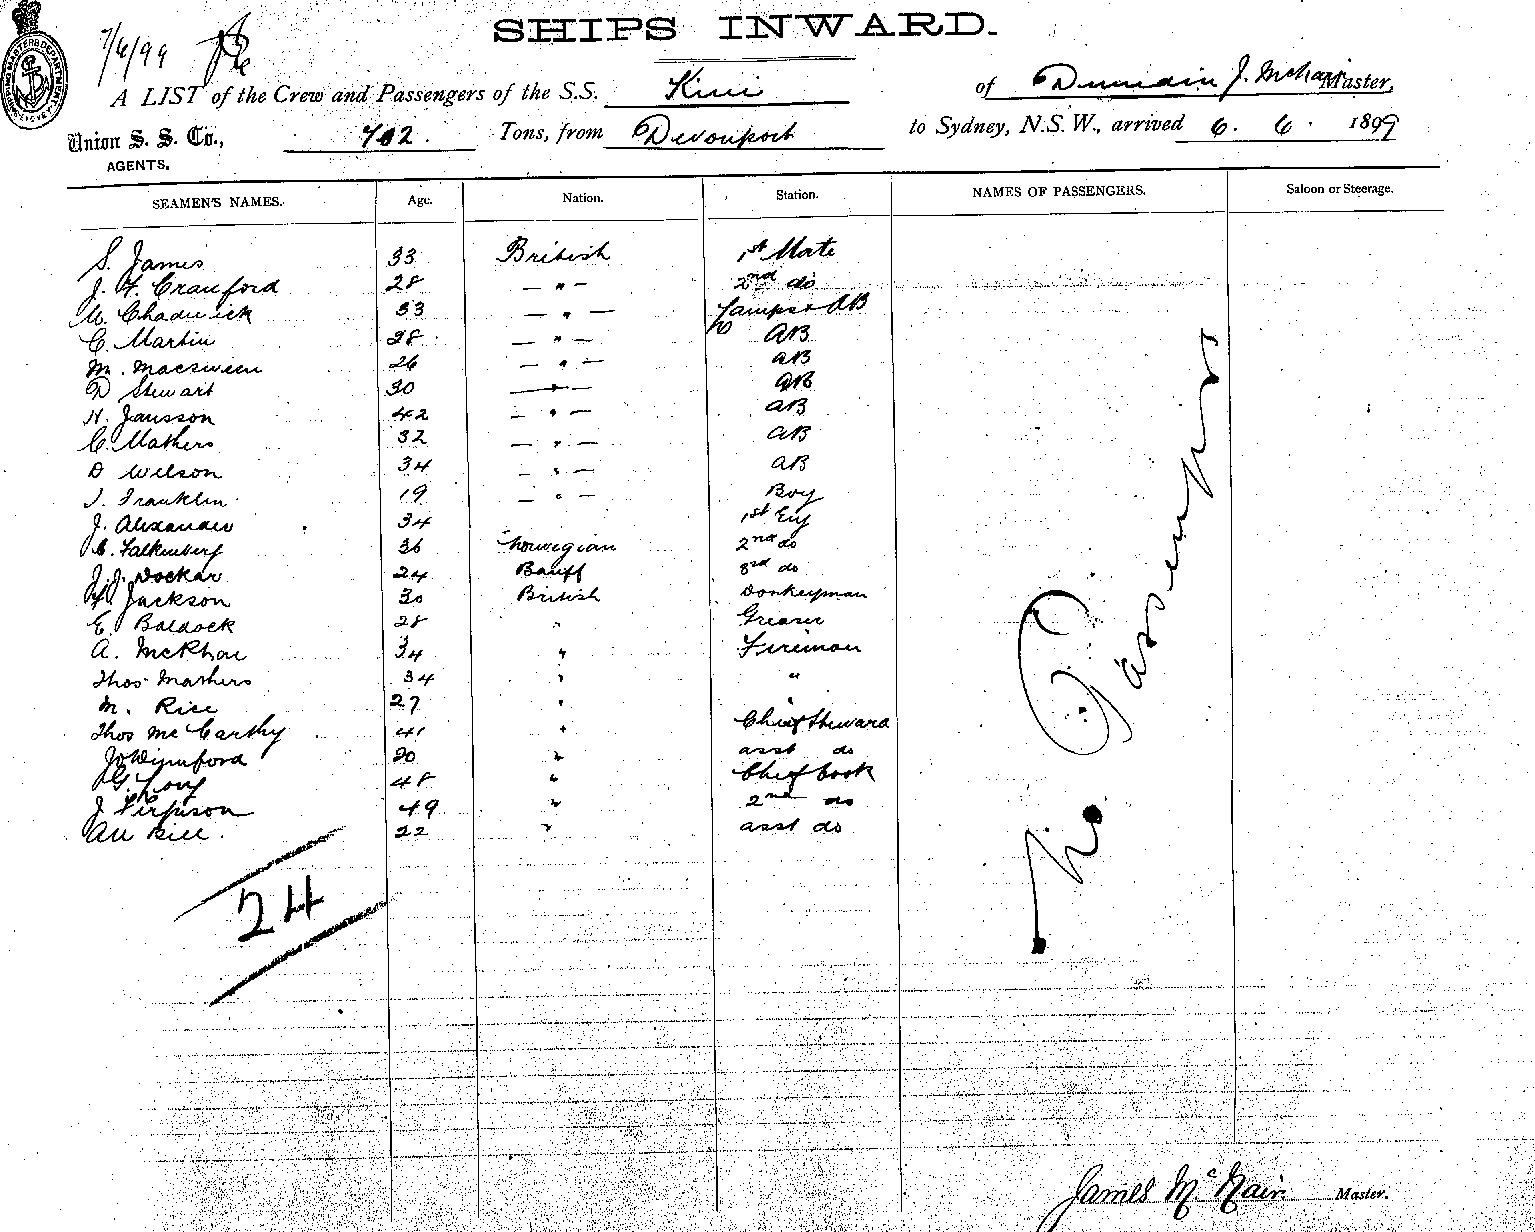 7/6/99
SHIPS INWARD.
A LIST of the Crew and Passengers of the S.S. Kini of Dunedin J. McNair Master,
Union S. S. Co., 702. Tons, from Devonport to Sydney, N.S.W., arrived 6. 6. 1899
AGENTS.
SEAMEN'S NAMES. Age. Nation. Station. NAMES OF PASSENGERS. Saloon or Steerage.
S. James 33 British 1st Mate
J. F. Crauford 28 — " — 2nd do
W. Chadwick 33 — " — Lamps & AB
C. Martin 28 — " — AB
M. Macsween 26 — " — AB
D Stewart 30 — " — AB
H. Jansson 42 — " — AB
C. Mathers 32 — " — AB
D Wilson 34 — " — AB
J. Franklin 19 — " — Boy
J. Alexander 34 1st Eng
C. Falkenberg 36 Norwegian 2nd do
J. J. Dockar 24 Banff 3rd do
Jackson 30 British Donkeyman
E. Baldock 28 " Greaser
A. McPhae 34 " Fireman
Thos Mathers 34 " "
M. Rice 27 " "
Thos McCarthy 41 " Chief Steward
20 " asst do
G. Long 48 " Chief Cook
J. Ferguson 49 " 2nd do
22 " asst do
24
No Passengers
James McNair Master.